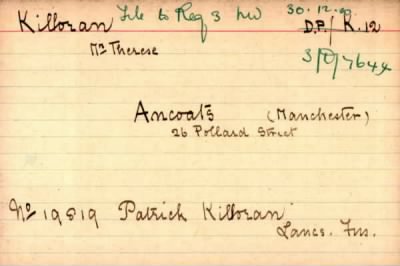 Killoran File to Reg 3 NW 30.12.20
D.P./K.12
Mrs Therese
3/D/7644
Ancoats (Manchester)
26 Pollard Street
No 19819 Patrick Killoran
Lancs. Fus.